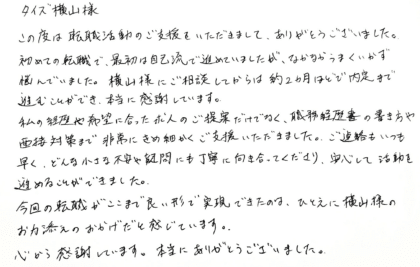 タイズ 横山様
この度は転職活動のご支援をいただきまして、ありがとうございました。
初めての転職で、最初は自己流で進めていましたが、なかなかうまくいかず
悩んでいました。横山様にご相談してからは約2カ月ほどで内定まで
進むことができ、本当に感謝しています。
私の経歴や希望に合った求人のご提案だけでなく、職務経歴書の書き方や
面接対策まで非常にきめ細かくご支援いただきました。ご連絡もいつも
早く、どんな小さな不安や疑問にも丁寧に向き合ってくださり、安心して活動を
進めることができました。
今回の転職がここまで良い形で実現できたのは、ひとえに横山様の
お力添えのおかげだと感じています。
心から感謝しています。本当にありがとうございました。